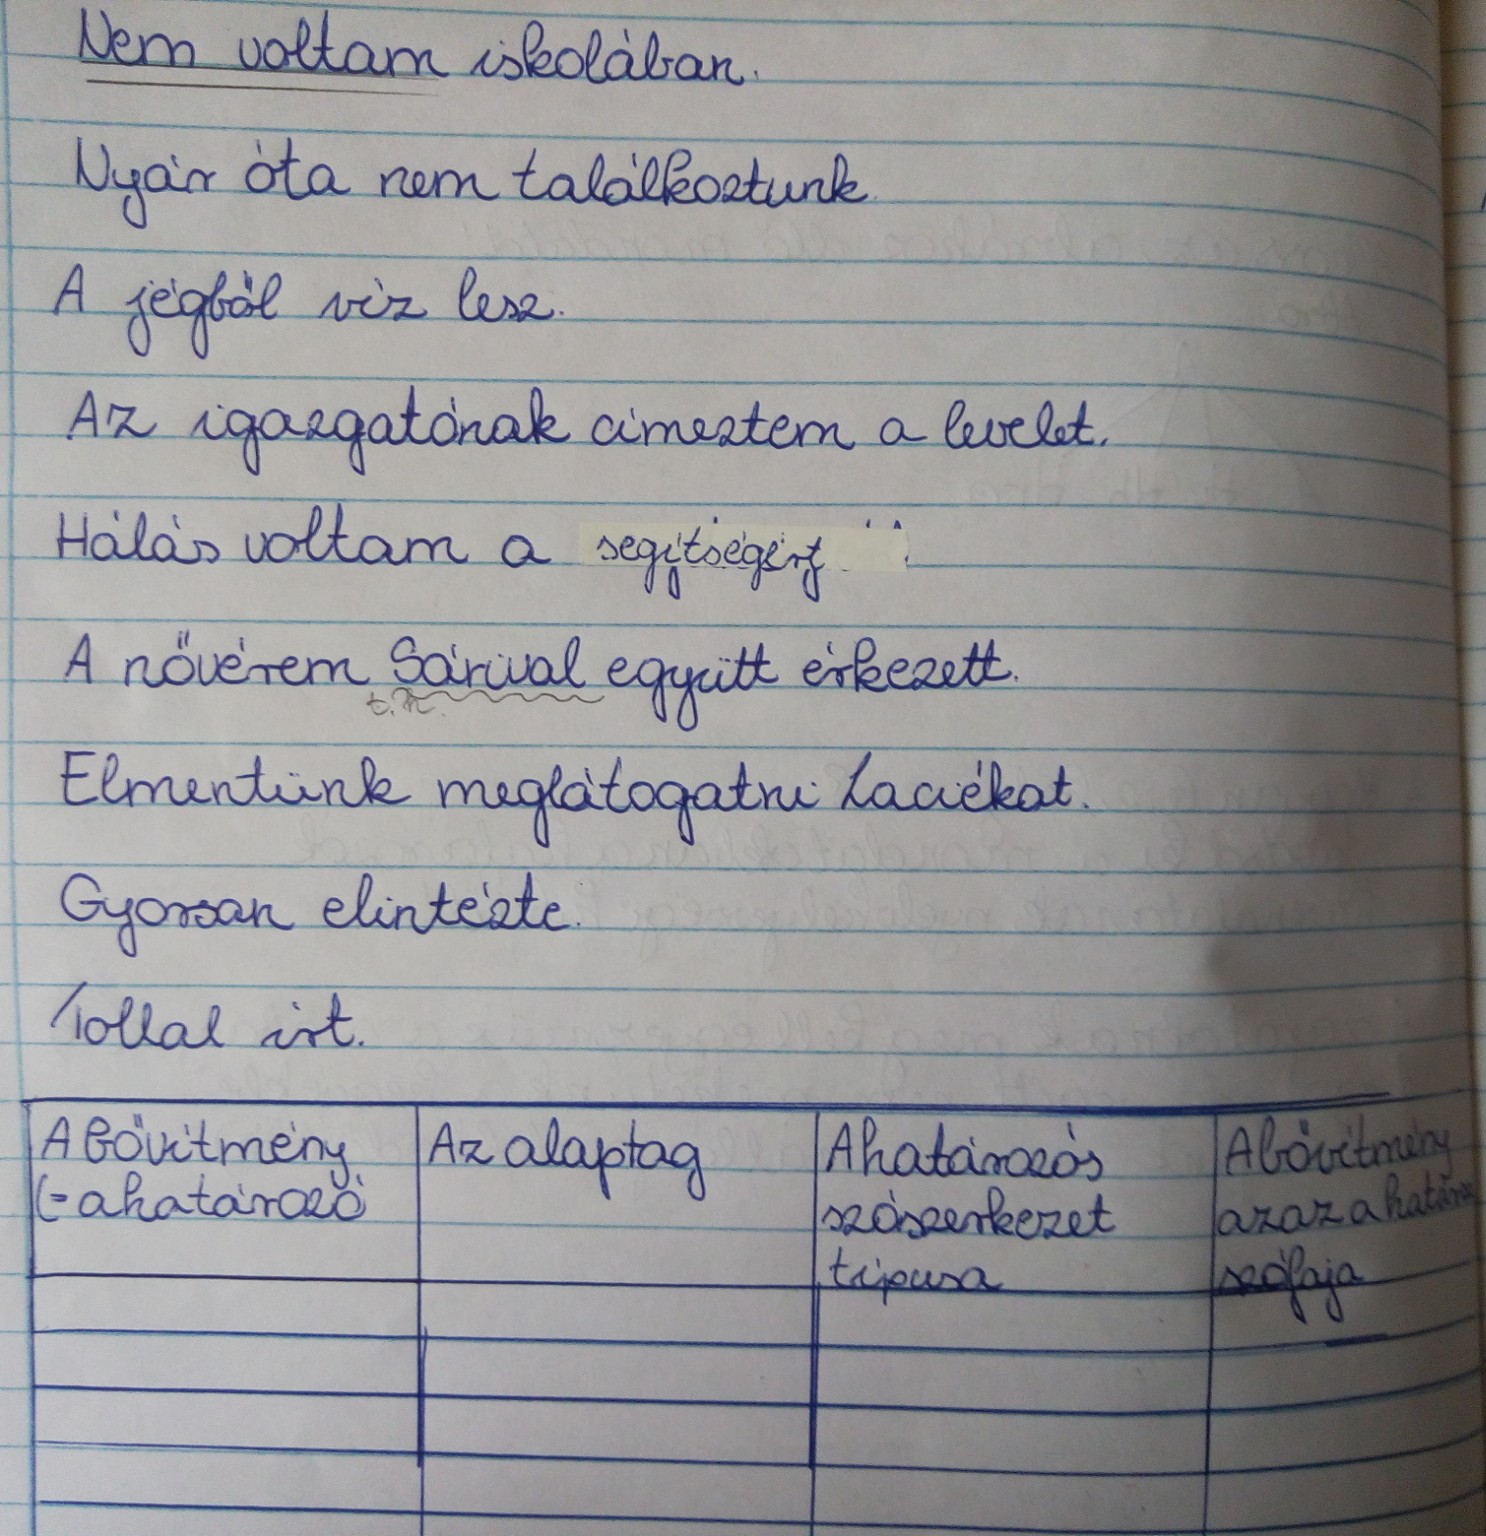 Nem voltam iskolában.
Nyár óta nem találkoztunk.
A jégből víz lesz.
Az igazgatónak címeztem a levelet.
Hálás voltam a segítségért
A nővérem Sárival együtt érkezett.
t.h.
Elmentünk meglátogatni Laciékat.
Gyorsan elintézte.
Tollal írt.
A bővítmény Az alaptag A határozós A bővítmény
(= a határozó szószerkezet azaz a határozó
típusa szófaja